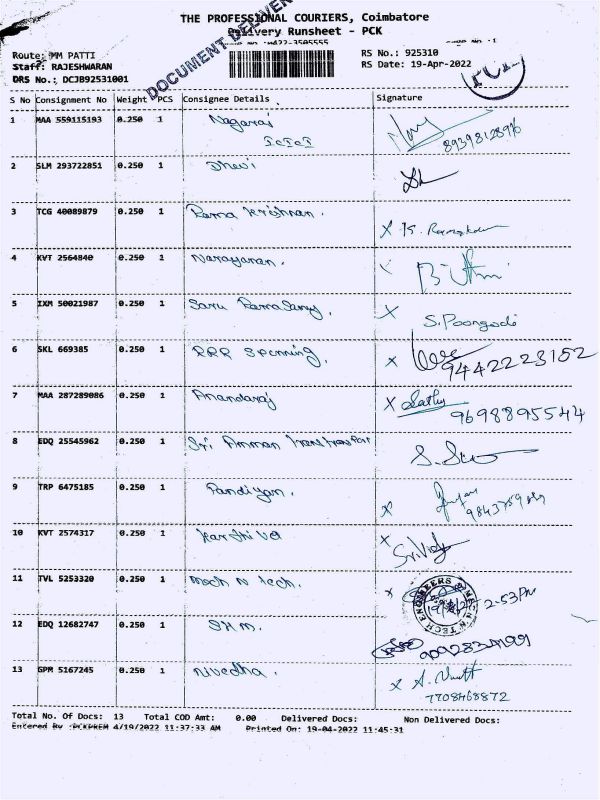 THE PROFESSIONAL COURIERS, Coimbatore
Delivery Runsheet - PCK
DOCUMENT DELIVERY
Route: MM PATTI
RS No.: 925310
Staff: RAJESHWARAN
RS Date: 19-Apr-2022
DRS No.: DCJB92531001
S No Consignment No Weight PCS Consignee Details Signature
1 MAA 559115193 0.250 1 Nagaraj
8939812896
2 SLM 293722851 0.250 1 Dhevi
3 TCG 40089879 0.250 1 Rama Krishnan.
4 KVT 2564840 0.250 1 Narayanan.
5 IXM 50021987 0.250 1 Saru Ramasamy,
X S. Poongodi
6 SKL 669385 0.250 1 RRR Spenning,
X 9442223152
7 MAA 287289086 0.250 1 Anandaraj
X Sathy
9698895544
8 EDQ 25545962 0.250 1 Sri Amman
9 TRP 6475185 0.250 1 Pandiyan.
10 KVT 2574317 0.250 1
X
11 TVL 5253320 0.250 1 Mech N Tech.
X 2-53PM
MECH N TECH ENGINEERS
12 EDQ 12682747 0.250 1 SHM.
13 GPM 5167245 0.250 1 Nivedha.
X
7708468872
Total No. Of Docs: 13 Total COD Amt: 0.00 Delivered Docs: Non Delivered Docs:
Entered By :PCKPREM 4/19/2022 11:37:33 AM Printed On: 19-04-2022 11:45:31